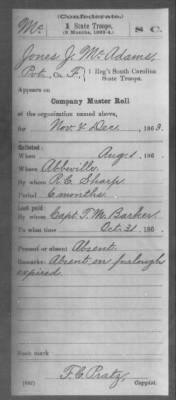 (Confederate.)
Mc 1 State Troops, S C.
(6 Months, 1863-4.)
Jones J. McAdams,
Pvt., Co. F, 1 Reg't South Carolina State Troops.
Appears on
Company Muster Roll
of the organization named above,
for Nov & Dec, 1863.
Enlisted:
When Aug 1, 186 .
Where Abbeville.
By whom R.C. Sharp
Period 6 months.
Last paid:
By whom Capt. T.M. Barker
To what time Oct. 31, 186 .
Present or absent Absent.
Remarks: Absent on furlough
expired.
Book mark:
(642) F.C. Pratz, Copyist.